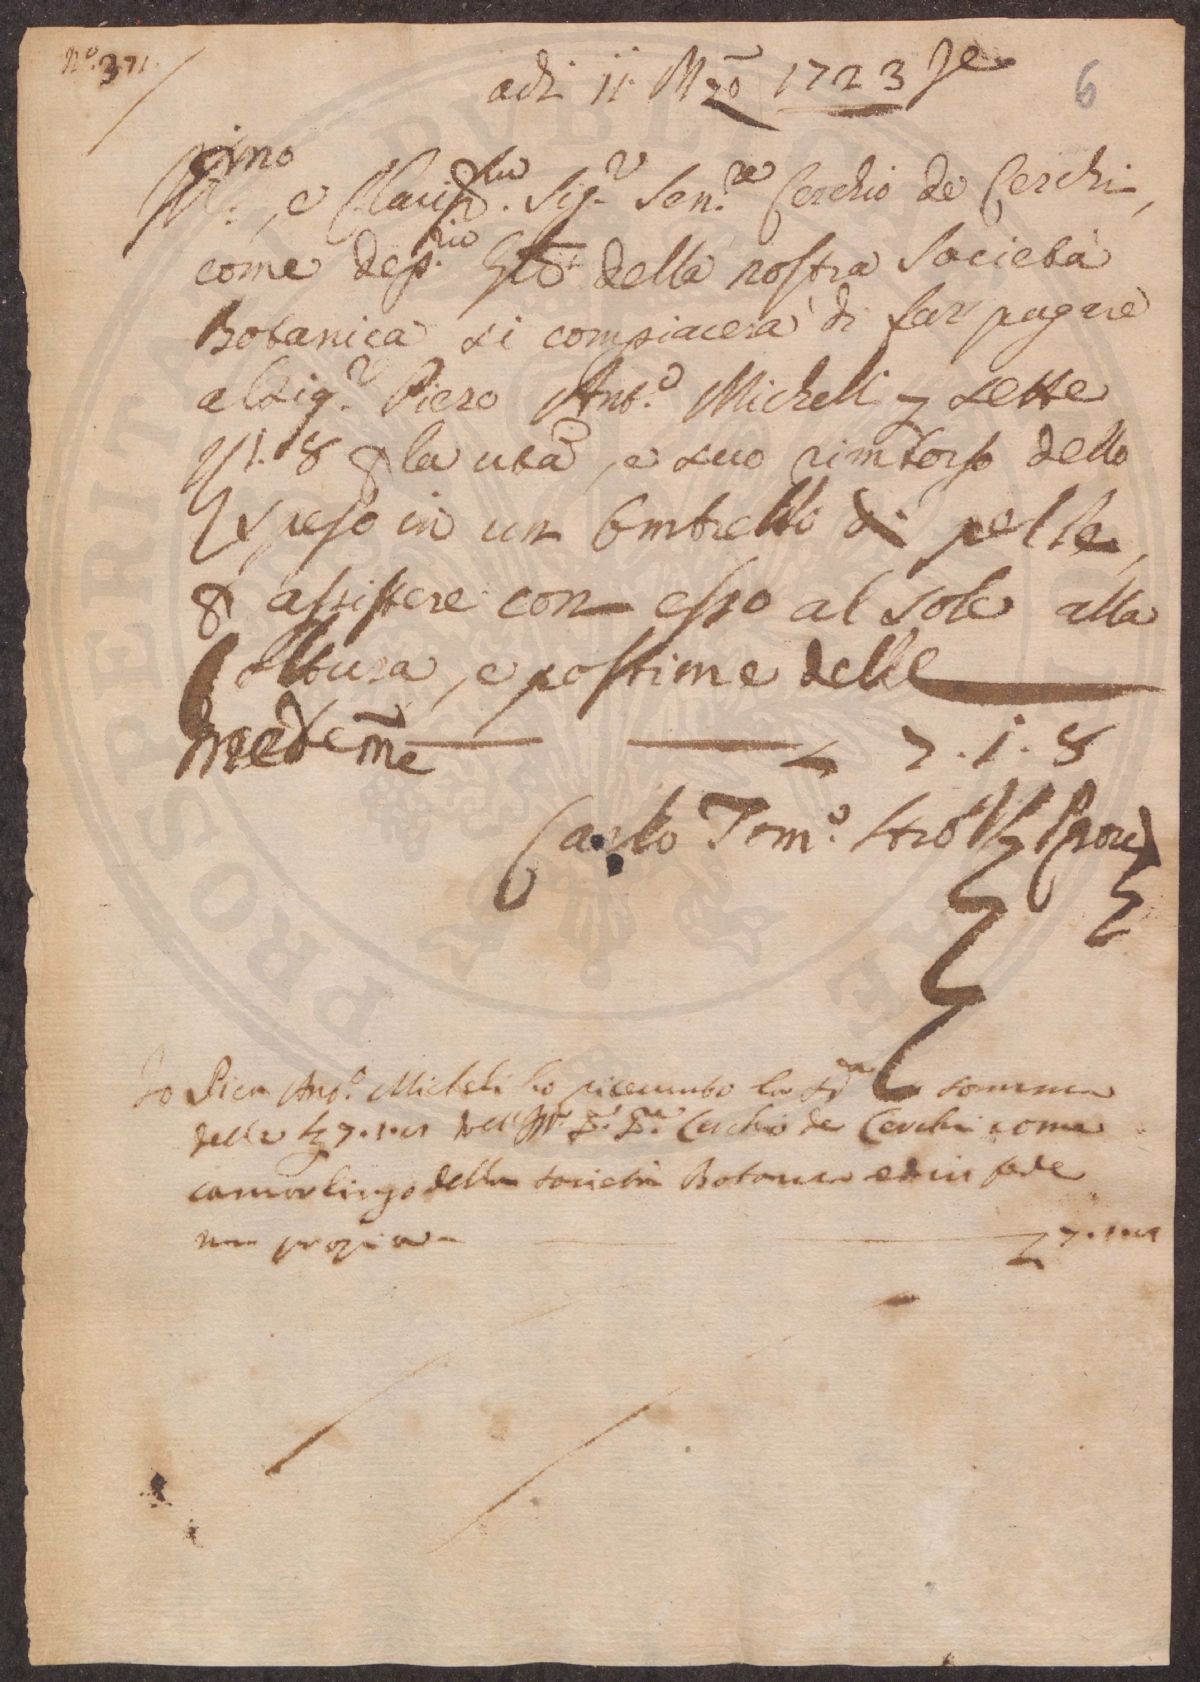 N.º 371.
adì 11 Mzõ 1723
6
Ill.mo, e Clariss.mo Sig.r Sen.re Cerchio de Cerchi,
come dep.rio della nostra Società
Botanica si compiacerà di far pagare
al Sig.r Piero Ant.º Micheli ₤ sette
1. 8 la uta, e suo rimborso dello
speso in un Ombrello di pelle,
assistere con esso al sole alla
Coltura, e postime delle
medeme ₤ 7. 1. 8
Carlo Tom.º Strozzi Priore
Io Pier Ant.º Micheli ho riceuuto la somma
delle 7.1.8 Cerchio de Cerchi come
camarlingo della Società Botanica ed in fede
mn propia ₤ 7.1.8